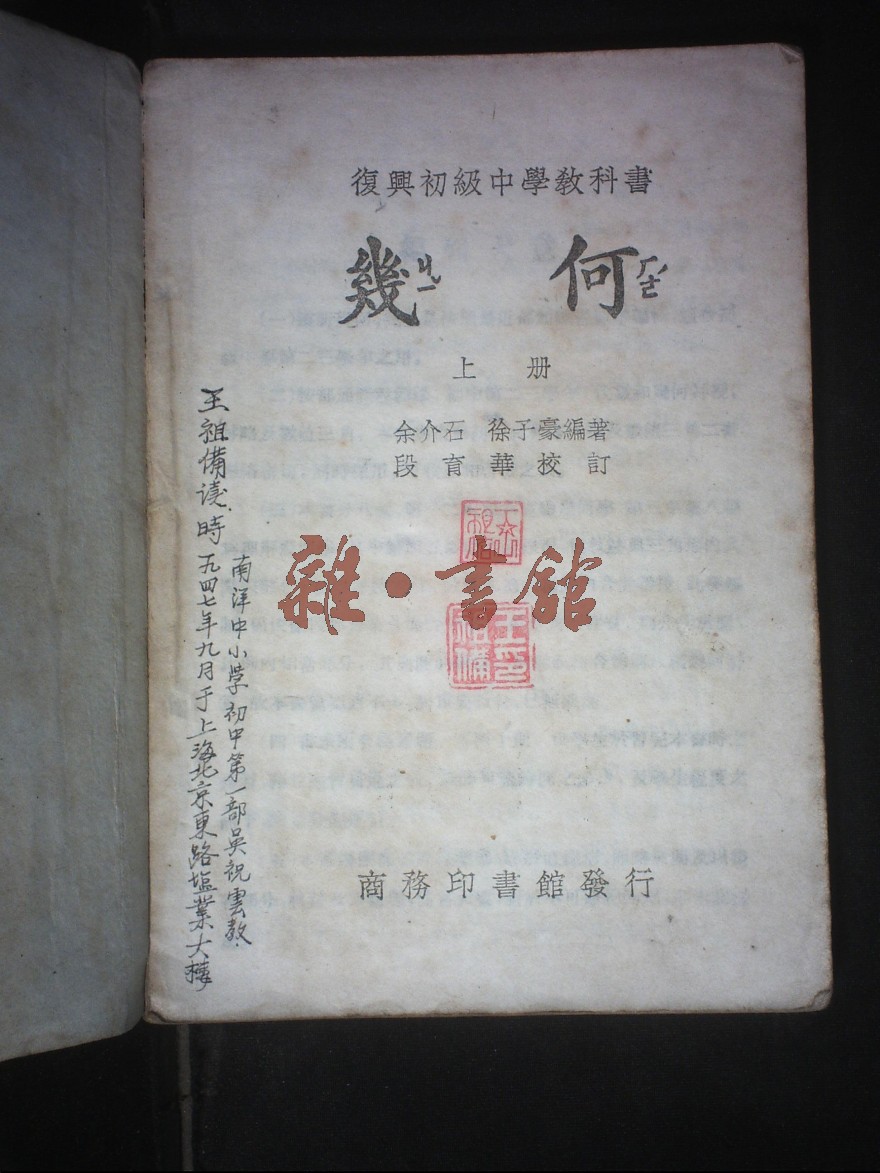 復興初級中學教科書
幾ㄐㄧ何ㄏㄜˊ
上册
余介石 徐子豪編著
段育華校訂
雜·書館
王祖備
王印祖備
商務印書館發行
王祖備读.時一九四七年九月于上海北京東路塩業大樓
南洋中小学初中第一部吴祝雲教.